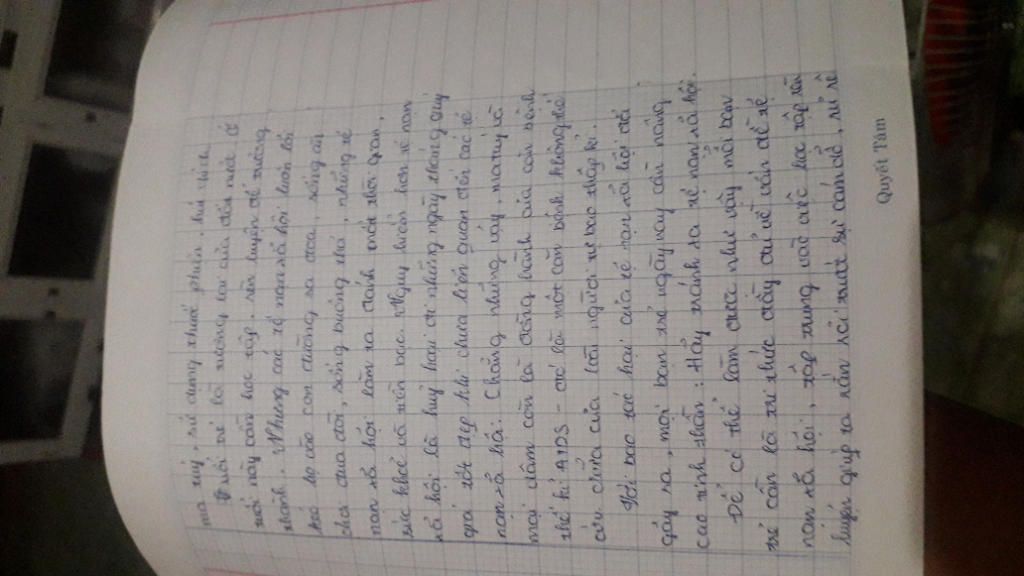 ma tuý, sử dụng thuốc phiện, hút chích
Tuổi trẻ là tương lai của đất nước. Ở
tuổi này cần học tập, rèn luyện để trưởng
thành. Nhưng các tệ nạn xã hội luôn lôi
kéo họ vào con đường sa đoạ, sống
chơi đua đòi, sống buông thả, những tệ
nạn xã hội làm ta đánh mất thời gian,
sức khoẻ và tiền bạc. Nguy hiểm hơn tệ nạn
xã hội là huỷ hoại đi những ngày tháng quý
giá tốt đẹp khi chưa liên quan đến các tệ
nạn xã hội. Chẳng những vậy, ma tuý và
mại dâm còn là đồng hành của căn bệnh
thế kỉ AIDS - đó là một căn bệnh không thể
cứu chữa của loài người từ bao thập kỉ.
Với bao tác hại của tệ nạn xã hội đã
gây ra, mỗi bạn trẻ ngày nay cần nâng
cao tinh thần: Hãy tránh xa tệ nạn xã hội.
Để có thể làm được như vậy mỗi bạn
trẻ cần có tri thức đầy đủ về vấn đề tệ
nạn xã hội, tập trung vào việc học tập rèn
luyện giúp ta rèn rồi xuất sự cám dỗ, rủ rê
Quyết Tâm